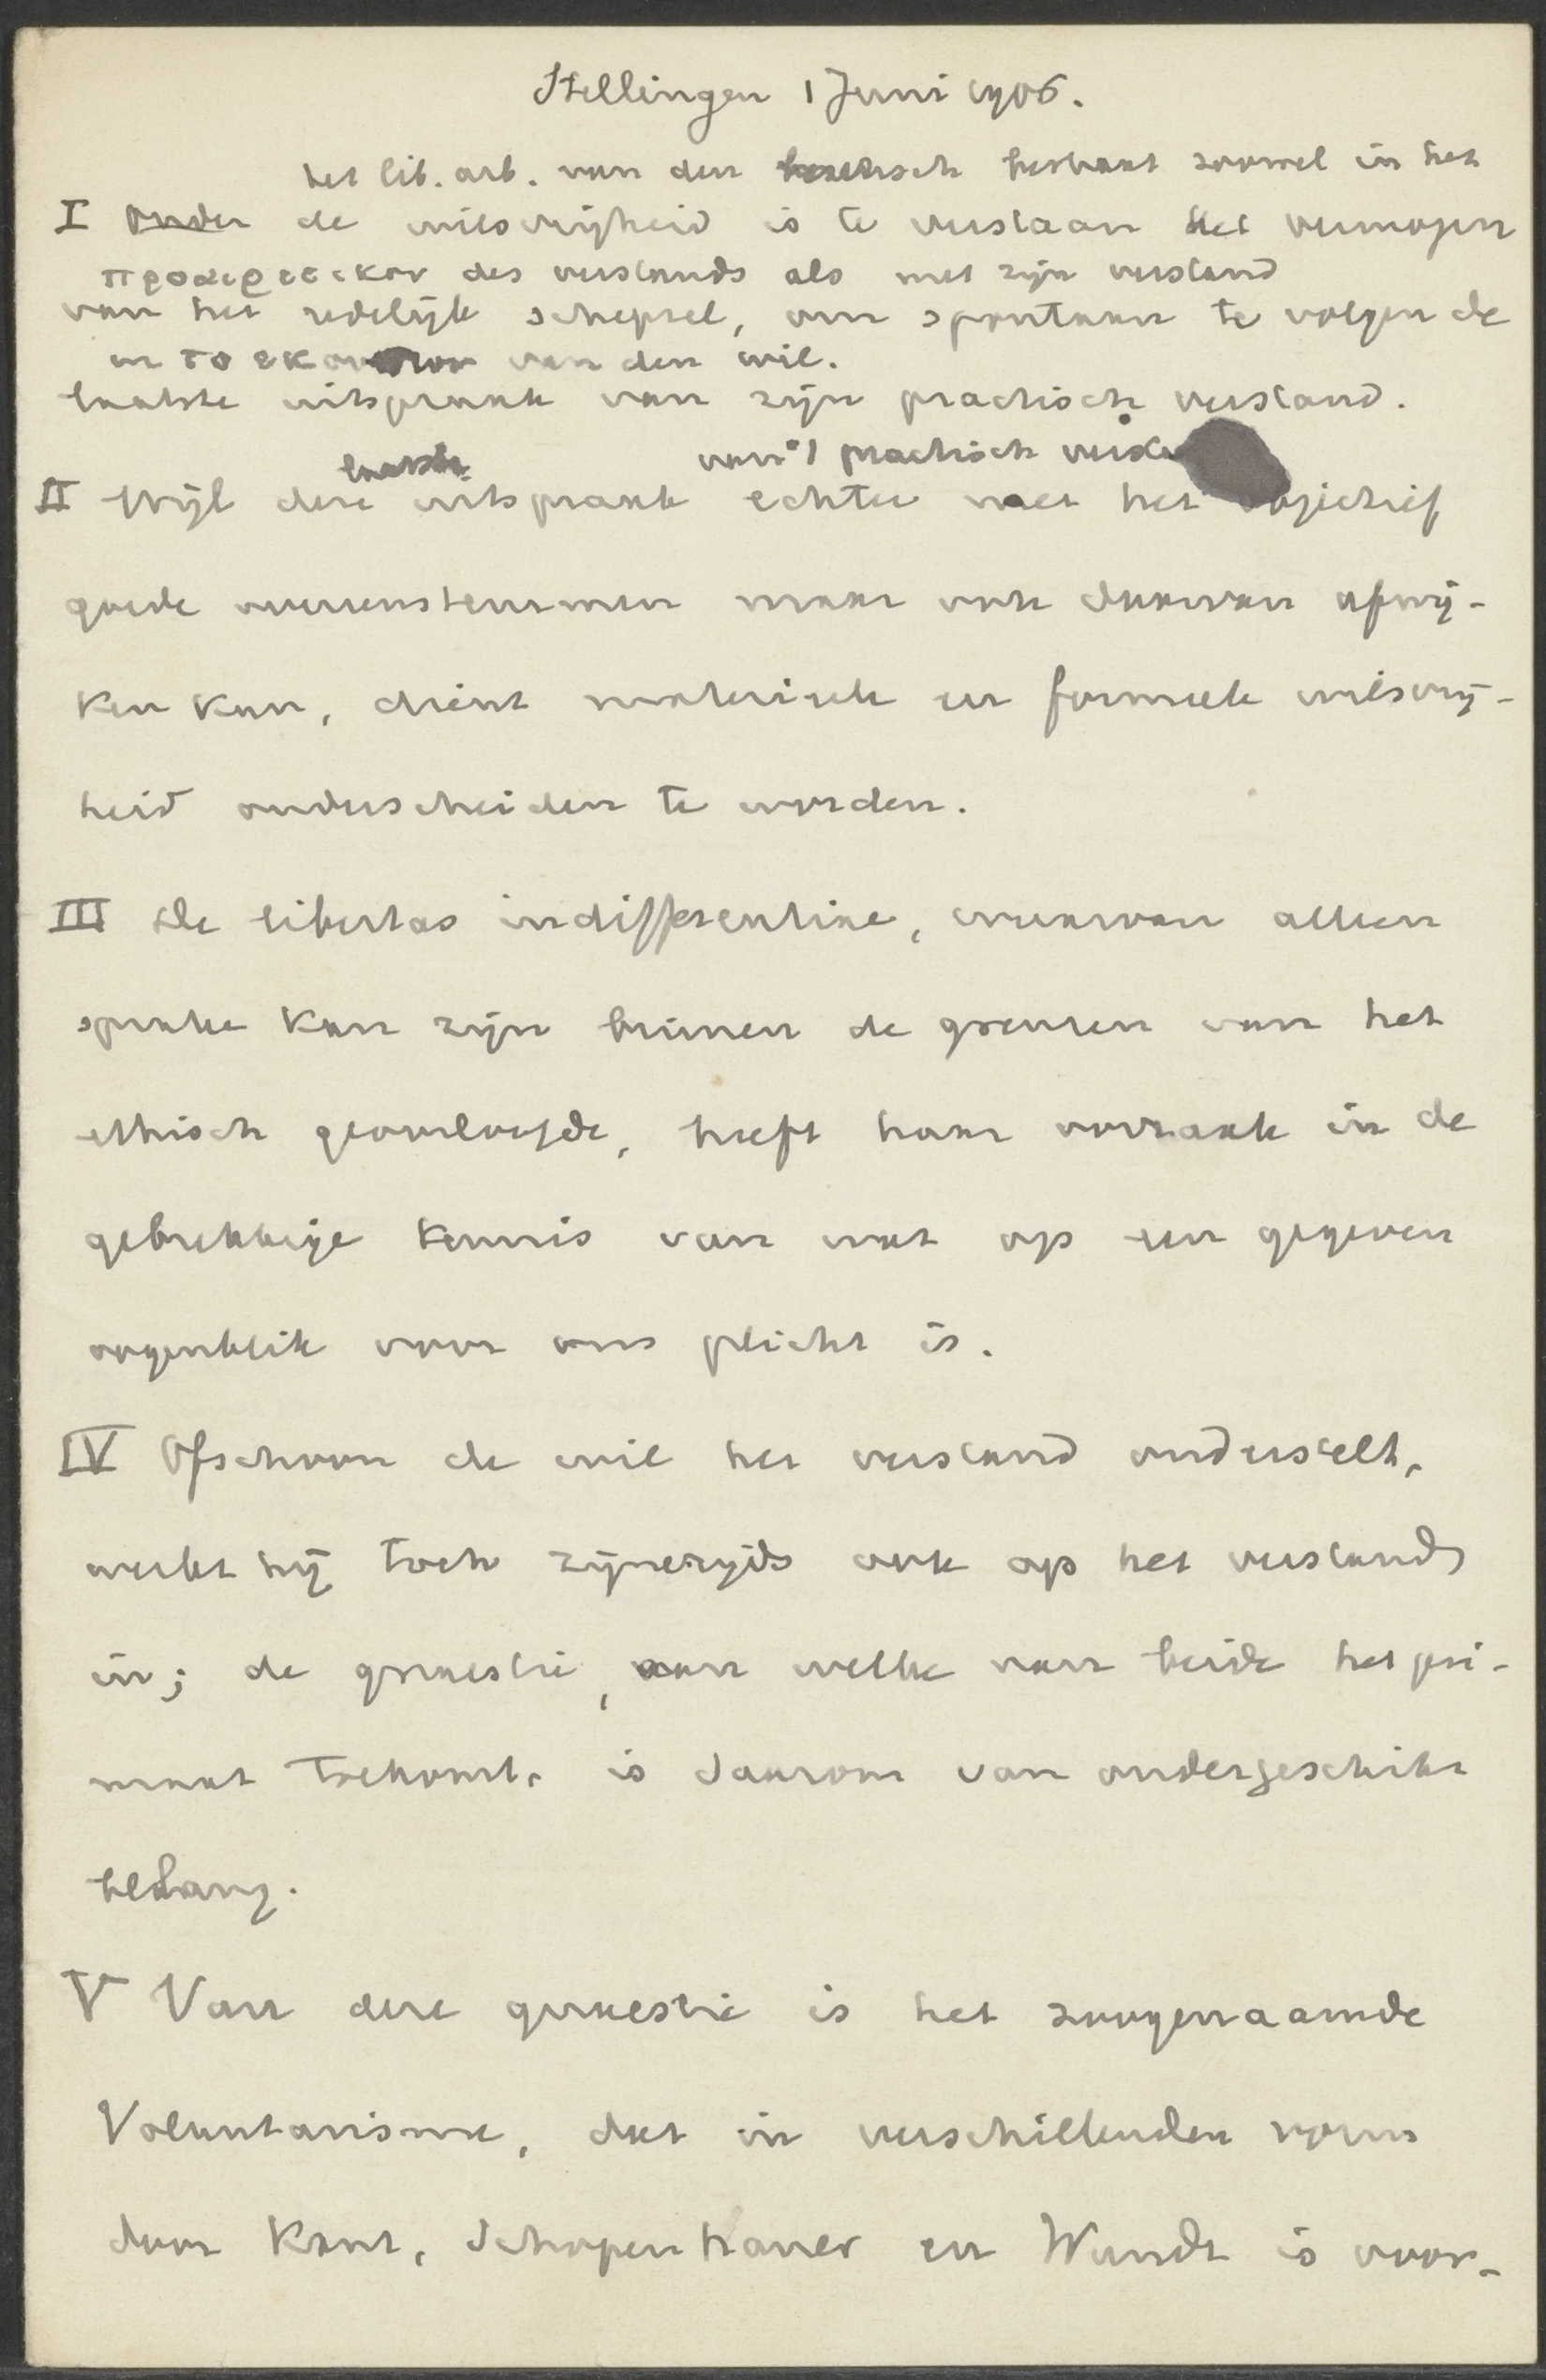 Stellingen 1 Juni 1906.
het lib. arb. van den mensch bestaat zoowel in het
I Onder de wilsvrijheid is te verstaan het vermogen
προαιρεσεκον des verstands als met zijn verstand
van het redelijk schepsel, om spontaan te volgen de
en το εκουσιον van den wil.
laatste uitspraak van zijn practisch verstand.
laatste van 't practisch verstand
II Wijl deze uitspraak echter met het objectief
goede overeenstemmen maar ook daarvan afwij-
ken kan, dient materieele en formeele wilsvrij-
heid onderscheiden te worden.
III De libertas indifferentiae, waarvan alleen
sprake kan zijn binnen de grenzen van het
ethisch geoorloofde, heeft haar oorzaak in de
gebrekkige kennis van wat op een gegeven
oogenblik voor ons plicht is.
IV Ofschoon de wil het verstand onderstelt,
werkt hij toch zijnerzijds ook op het verstand
in; de quaestie, aan welke van beide het pri-
maat toekomt, is daarom van ondergeschikt
belang.
V Van deze quaestie is het zoogenaamde
Voluntarisme, dat in verschillenden vorm
door Kant, Schopenhauer en Wundt is voor-